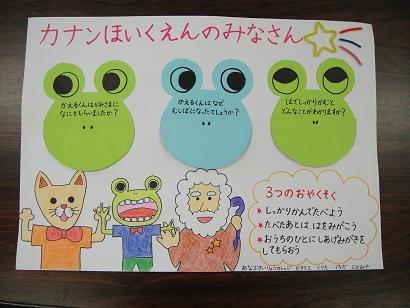 カナンほいくえんのみなさん
かえるくんはかみさまに
なにをもらいましたか？
かえるくんは なぜ
むしばになったでしょうか？
はでしっかりかむと
どんなことがわかりますか？
3つのおやくそく
★しっかりかんでたべよう
★たべたあとは、はをみがこう
★おうちのひとに しあげみがきを
してもらおう